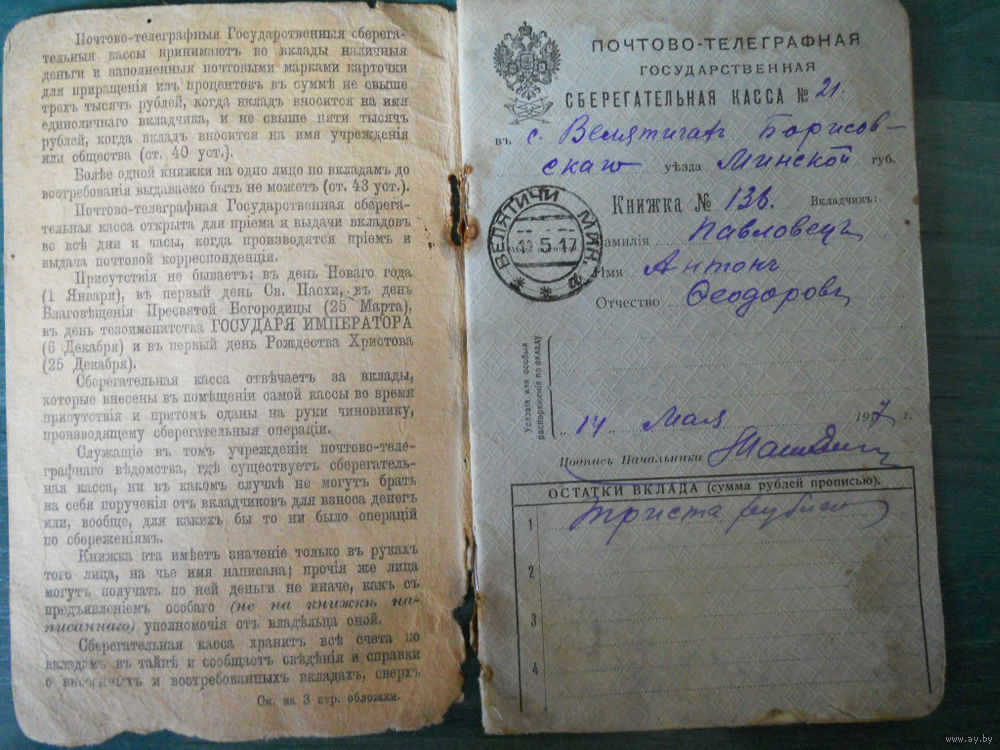 Почтово-телеграфныя Государственныя сберега-
тельныя кассы принимаютъ во вклады наличныя
деньги и заполненныя почтовыми марками карточки
для приращенія изъ процентовъ въ суммѣ не свыше
трехъ тысячъ рублей, когда вкладъ вносится на имя
единоличнаго вкладчика, и не свыше пяти тысячъ
рублей, когда вкладъ вносится на имя учрежденія
или общества (ст. 40 уст.).
Болѣе одной книжки на одно лицо по вкладамъ до
востребованія выдаваемо быть не можетъ (ст. 43 уст.).
Почтово-телеграфная Государственная сберега-
тельная касса открыта для пріема и выдачи вкладовъ
во всѣ дни и часы, когда производятся пріемъ и
выдача почтовой корреспонденціи.
Присутствія не бываетъ: въ день Новаго года
(1 Января), въ первый день Св. Пасхи, въ день
Благовѣщенія Пресвятой Богородицы (25 Марта),
въ день тезоименитства ГОСУДАРЯ ИМПЕРАТОРА
(6 Декабря) и въ первый день Рождества Христова
(25 Декабря).
Сберегательная касса отвѣчаетъ за вклады,
которые внесены въ помѣщеніи самой кассы во время
присутствія и притомъ сданы на руки чиновнику,
производящему сберегательныя операціи.
Служащіе въ томъ учрежденіи почтово-теле-
графнаго вѣдомства, гдѣ существуетъ сберегатель-
ная касса, ни въ какомъ случаѣ не могутъ брать
на себя порученія отъ вкладчиковъ для взноса денегъ
или, вообще, для какихъ бы то ни было операцій
по сбереженіямъ.
Книжка эта имѣетъ значеніе только въ рукахъ
того лица, на чье имя написана; прочія же лица
могутъ получать по ней деньги не иначе, какъ съ
предъявленіемъ особаго (не на книжкѣ на-
писаннаго) уполномочія отъ владѣльца оной.
Сберегательная касса хранитъ всѣ счета по
вкладамъ въ тайнѣ и сообщаетъ свѣдѣнія и справки
о внесенныхъ и востребованныхъ вкладахъ, сверхъ
См. на 3 стр. обложки.
ПОЧТОВО-ТЕЛЕГРАФНАЯ
ГОСУДАРСТВЕННАЯ
СБЕРЕГАТЕЛЬНАЯ КАССА № 21.
въ с. Велятичахъ Борисов-
скаго уѣзда Минской губ.
Книжка № 136. Вкладчикъ:
ВЕЛЯТИЧИ МИН.
5.17
Фамилія Павловецъ
Имя Антонъ
Отчество Ѳеодоровъ
Условія или особыя
распоряженія по вкладу
„14" Мая 1917 г.
Подпись Начальника
ОСТАТКИ ВКЛАДА (сумма рублей прописью).
1 Триста рублей
2
3
4
www.ay.by